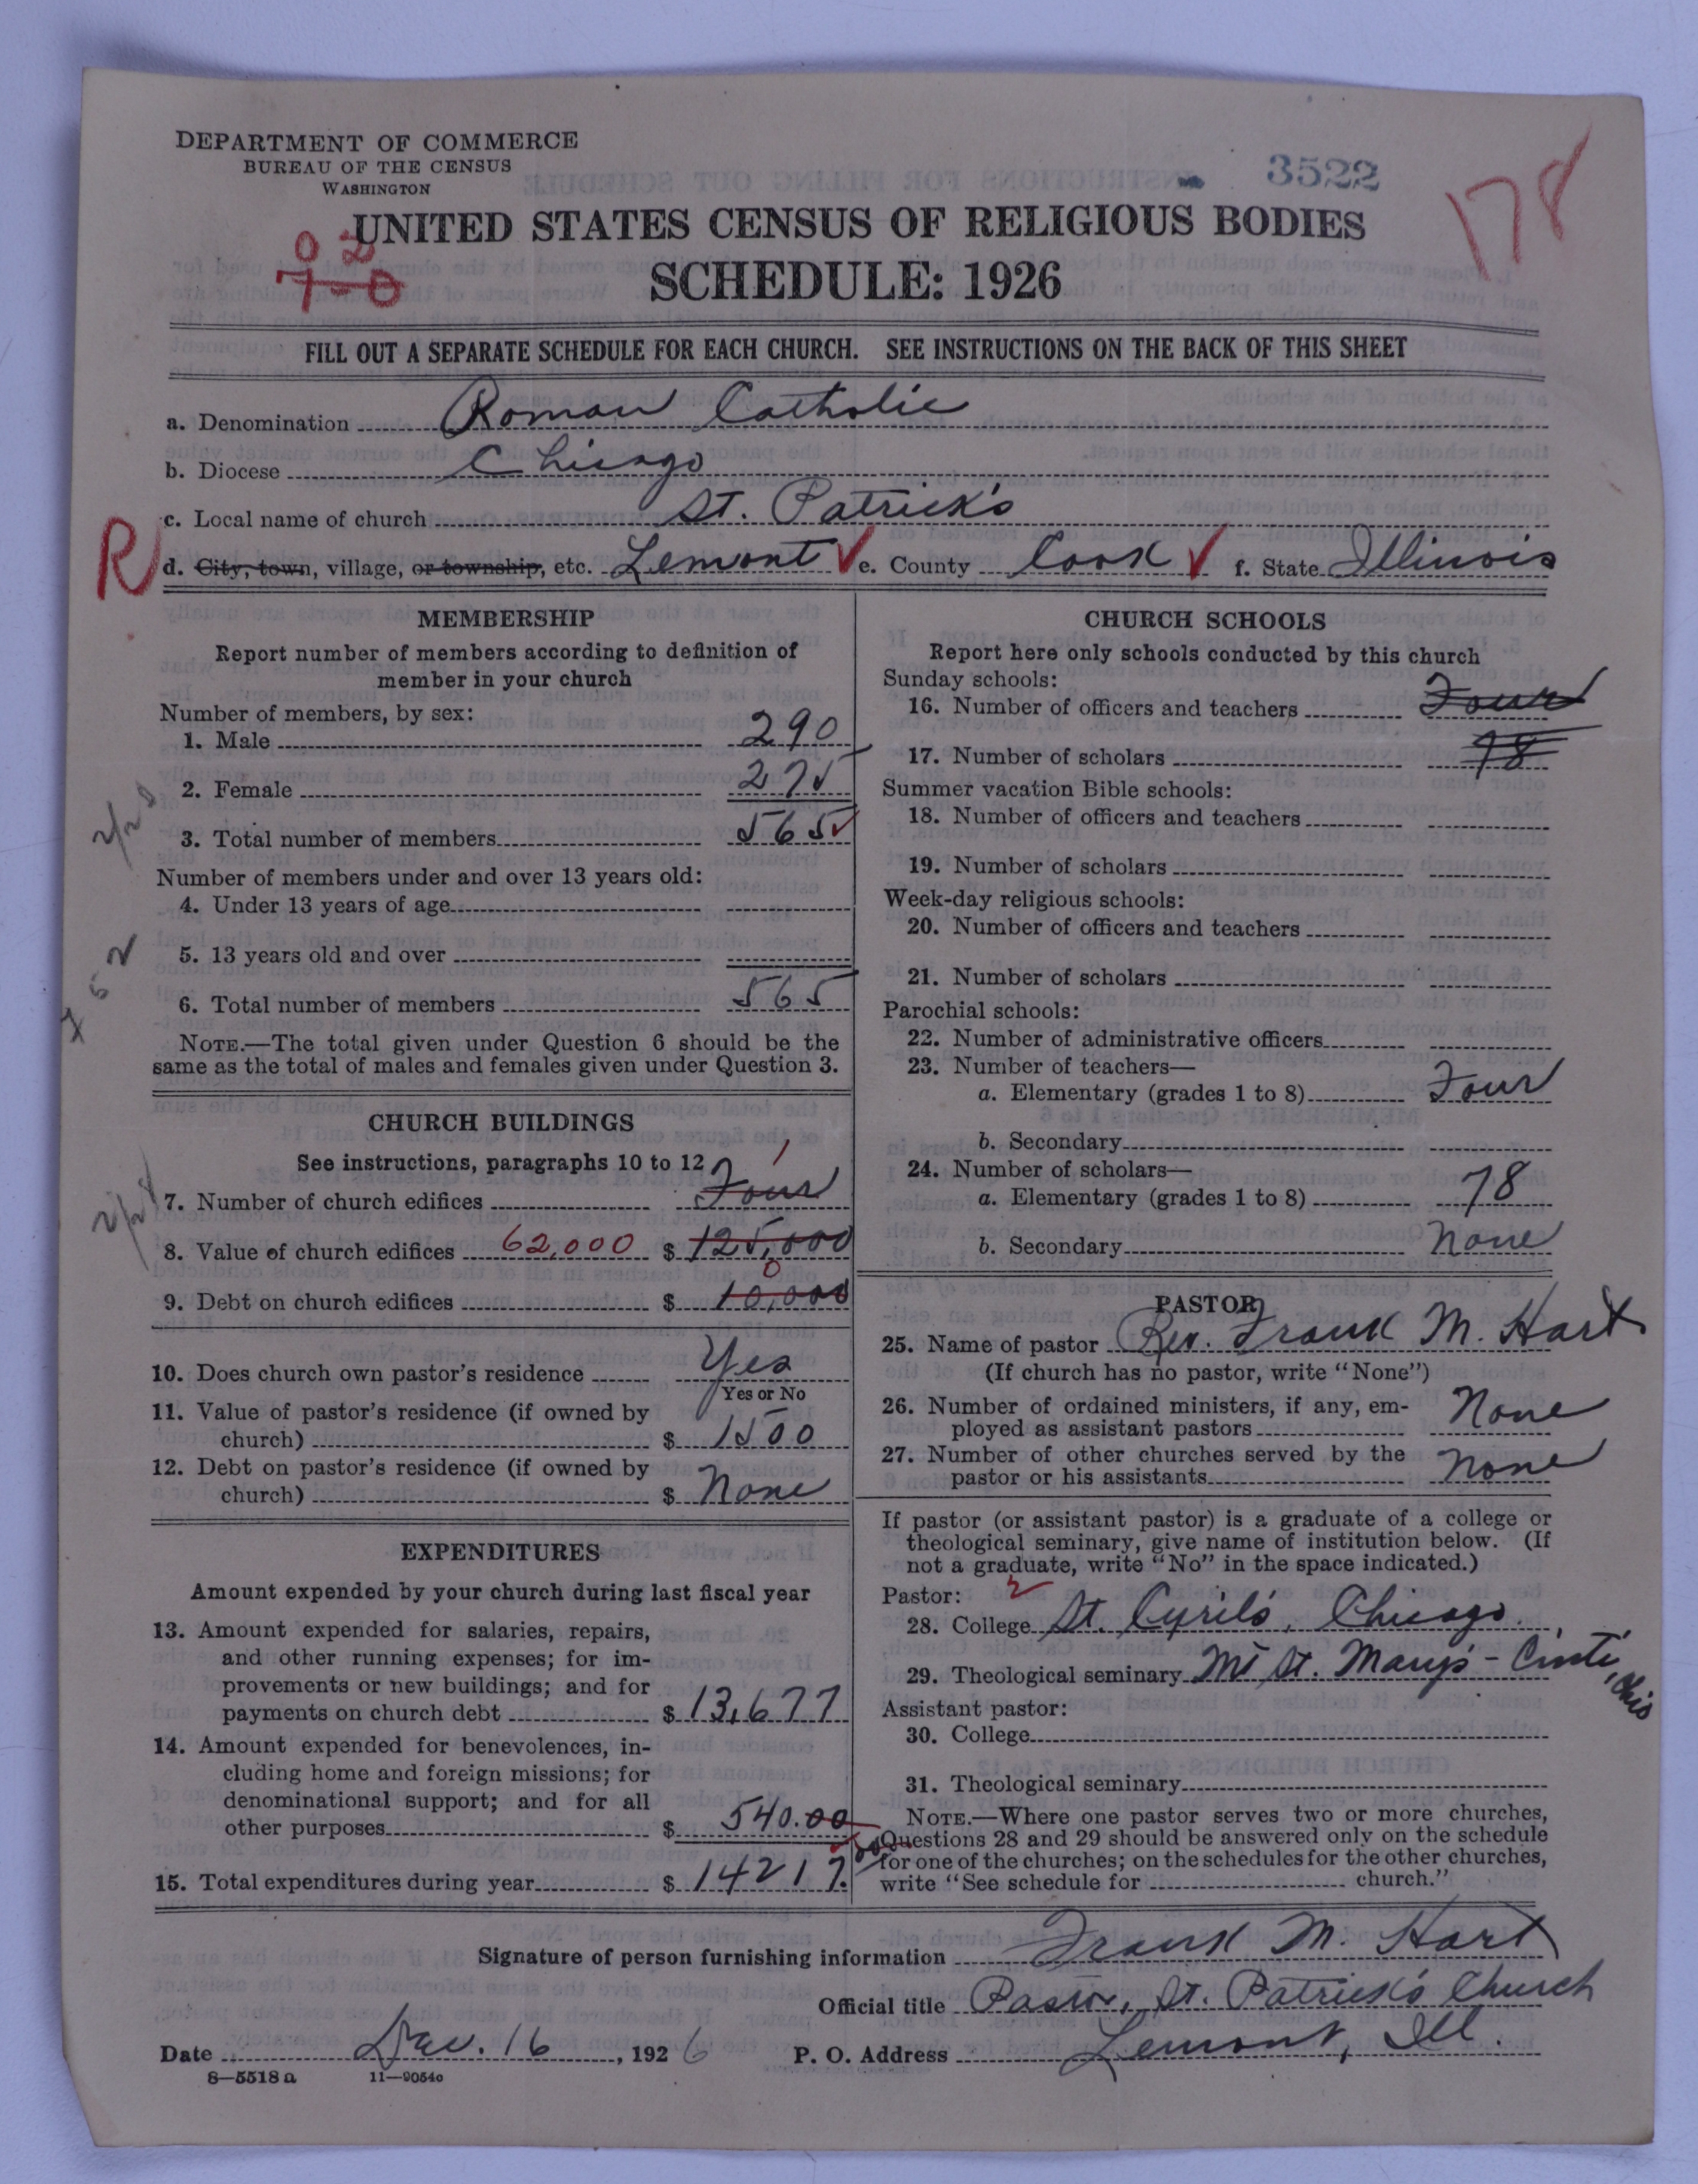 DEPARTMENT OF COMMERCE
BUREAU OF THE CENSUS
WASHINGTON
3522
178
UNITED STATES CENSUS OF RELIGIOUS BODIES
0 2
7-0
SCHEDULE: 1926
FILL OUT A SEPARATE SCHEDULE FOR EACH CHURCH. SEE INSTRUCTIONS ON THE BACK OF THIS SHEET
a. Denomination Roman Catholic
b. Diocese Chicago
c. Local name of church St. Patrick's
R d. City, town, village, or township, etc. Lemont e. County Cook f. State Illinois
MEMBERSHIP
Report number of members according to definition of
member in your church
Number of members, by sex:
1. Male 290
2. Female 275
3. Total number of members 565
Number of members under and over 13 years old:
4. Under 13 years of age
5. 13 years old and over
6. Total number of members 565
NOTE.—The total given under Question 6 should be the
same as the total of males and females given under Question 3.
CHURCH BUILDINGS
See instructions, paragraphs 10 to 12
1
7. Number of church edifices Four
8. Value of church edifices 62,000 $ 125,000
0
9. Debt on church edifices $ 10,000
10. Does church own pastor's residence Yes
Yes or No
11. Value of pastor's residence (if owned by
church) $ 1500
12. Debt on pastor's residence (if owned by
church) $ None
EXPENDITURES
Amount expended by your church during last fiscal year
13. Amount expended for salaries, repairs,
and other running expenses; for im-
provements or new buildings; and for
payments on church debt $ 13,677
14. Amount expended for benevolences, in-
cluding home and foreign missions; for
denominational support; and for all
other purposes $ 540.00
15. Total expenditures during year $ 14217.
CHURCH SCHOOLS
Report here only schools conducted by this church
Sunday schools:
16. Number of officers and teachers Four
17. Number of scholars 78
Summer vacation Bible schools:
18. Number of officers and teachers
19. Number of scholars
Week-day religious schools:
20. Number of officers and teachers
21. Number of scholars
Parochial schools:
22. Number of administrative officers
23. Number of teachers—
a. Elementary (grades 1 to 8) Four
b. Secondary
24. Number of scholars—
a. Elementary (grades 1 to 8) 78
b. Secondary None
PASTOR
25. Name of pastor Rev. Frank M. Hart
(If church has no pastor, write "None")
26. Number of ordained ministers, if any, em-
ployed as assistant pastors None
27. Number of other churches served by the
pastor or his assistants None
If pastor (or assistant pastor) is a graduate of a college or
theological seminary, give name of institution below. (If
not a graduate, write "No" in the space indicated.)
Pastor: 2
28. College St. Cyril's, Chicago.
29. Theological seminary Mt St. Mary's - Cinti, Ohio
Assistant pastor:
30. College
31. Theological seminary
NOTE.—Where one pastor serves two or more churches,
Questions 28 and 29 should be answered only on the schedule
for one of the churches; on the schedules for the other churches,
write "See schedule for church."
Signature of person furnishing information Frank M. Hart
Official title Pastor, St. Patrick's Church
Date Dec. 16, 1926 P. O. Address Lemont, Ill.
8—5518a 11—9054c